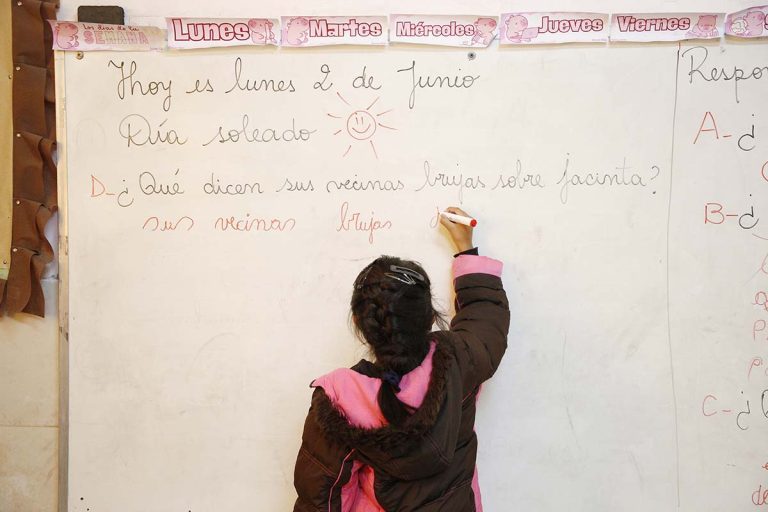 Los días de la SEMANA Lunes Martes Miércoles Jueves Viernes
Hoy es lunes 2 de Junio
Día soleado
D-¿Qué dicen sus vecinas brujas sobre jacinta?
sus vecinas brujas
Respon
A-¿
B-¿
C-¿